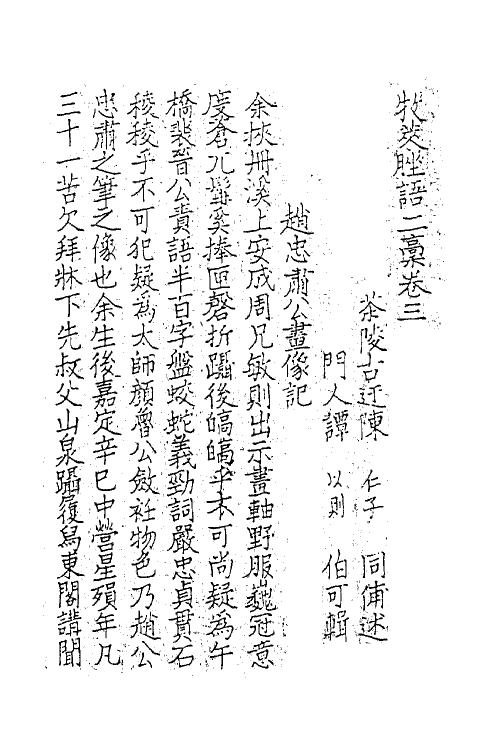 牧莢脞語二藁卷三
茶陵古迂陳 仁子 同俌述
門人譚 以則 伯可輯
趙忠肅公畫像記
余挾冊溪上安成周兄敏則出示畫軸野服巍冠意
度滄兀鬅奚捧匜磬折躡後皜皜乎不可尚疑為午
橋裴晉公賛語半百字盤蛟蛇義勁詞嚴忠貞貫石
稜稜乎不可犯疑為太師顏魯公斂衽物色乃趙公
忠肅之筆之像也余生後嘉定辛巳中營星殞年凡
三十一苦欠拜牀下先叔父山泉躡履舄東閣講聞